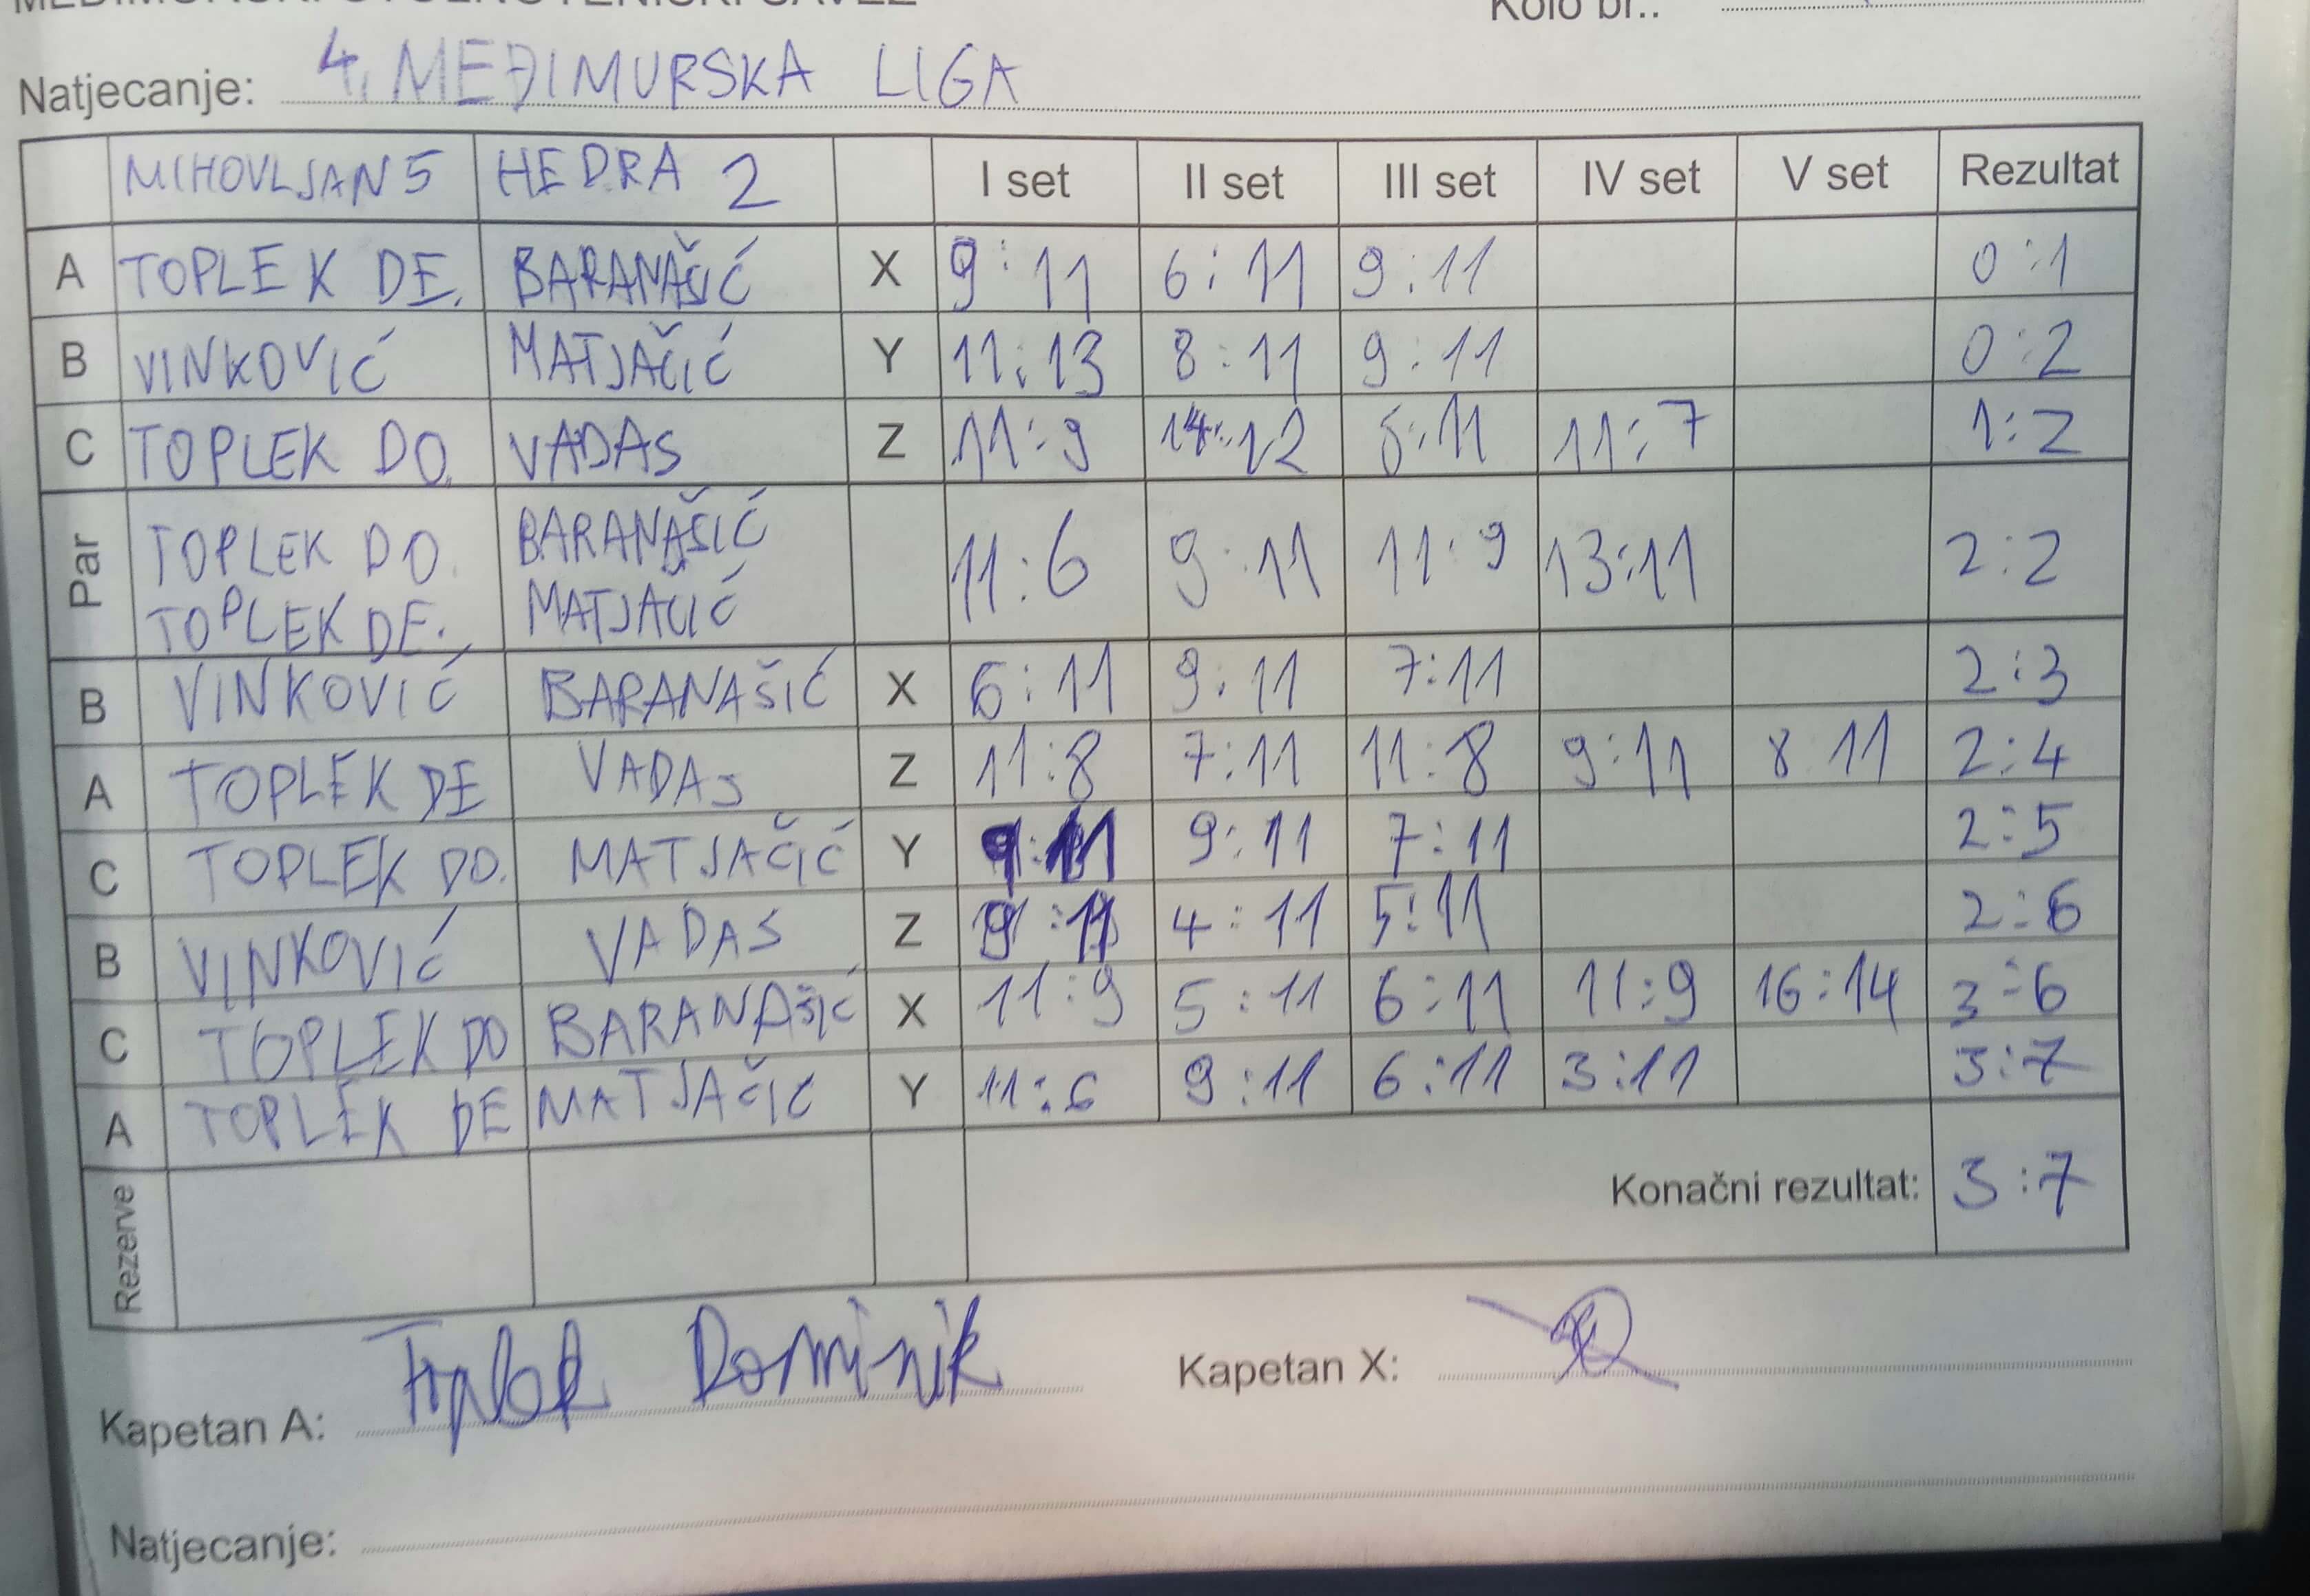 Natjecanje: 4. MEĐIMURSKA LIGA
MIHOVLJAN 5 HEDRA 2 I set II set III set IV set V set Rezultat
A TOPLEK DE. BARANAŠIĆ X 9:11 6:11 9:11 0:1
B VINKOVIĆ MATJAČIĆ Y 11:13 8:11 9:11 0:2
C TOPLEK DO. VADAS Z 11:9 14:12 :11 11:7 1:2
Par TOPLEK DO. BARANAŠIĆ 11:6 9:11 11:9 13:11 2:2
TOPLEK DE. MATJAČIĆ
B VINKOVIĆ BARANAŠIĆ X 6:11 9:11 7:11 2:3
A TOPLEK DE VADAS Z 11:8 7:11 11:8 9:11 8 11 2:4
C TOPLEK DO. MATJAČIĆ Y 9:11 9:11 7:11 2:5
B VINKOVIĆ VADAS Z 9:11 4:11 5:11 2:6
C TOPLEK DO BARANAŠIĆ X 11:9 5:11 6:11 11:9 16:14 3:6
A TOPLEK DE MATJAČIĆ Y 11:6 9:11 6:11 3:11 3:7
Rezerve Konačni rezultat: 3:7
Kapetan A: Toplek Dominik Kapetan X:
Natjecanje: